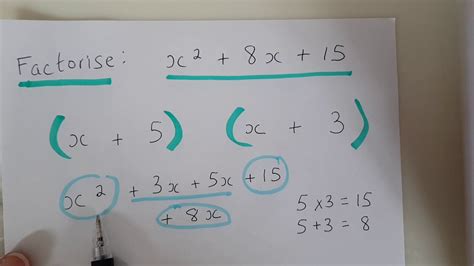 Factorise: x² + 8x + 15
(x + 5) (x + 3)
x² + 3x + 5x + 15
+ 8x
5 x 3 = 15
5 + 3 = 8